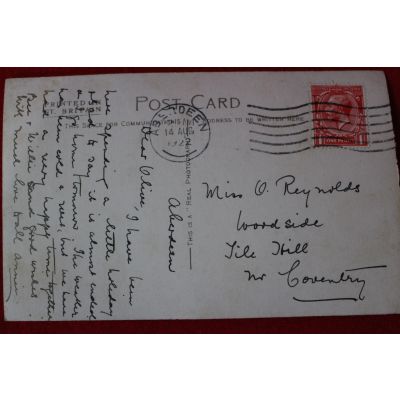 PRINTED IN
GT. BRITAIN
POST CARD
THIS SPACE FOR COMMUNICATION
ADDRESS TO BE WRITTEN HERE
THIS IS A "REAL PHOTOGRAPH"
ABERDEEN
14 AUG
192
1 ONE PENNY 1
Miss O. Reynolds
Woodside
Tile Hill
nr Coventry
Aberdeen
Dear Olive, I have been
here spending a little holiday
& sad to say it is almost ended,
as I go home tomorrow. The weather
has been cold & wet, but we have
had a very happy time together
Bee & Willie send good wishes
With much love to all